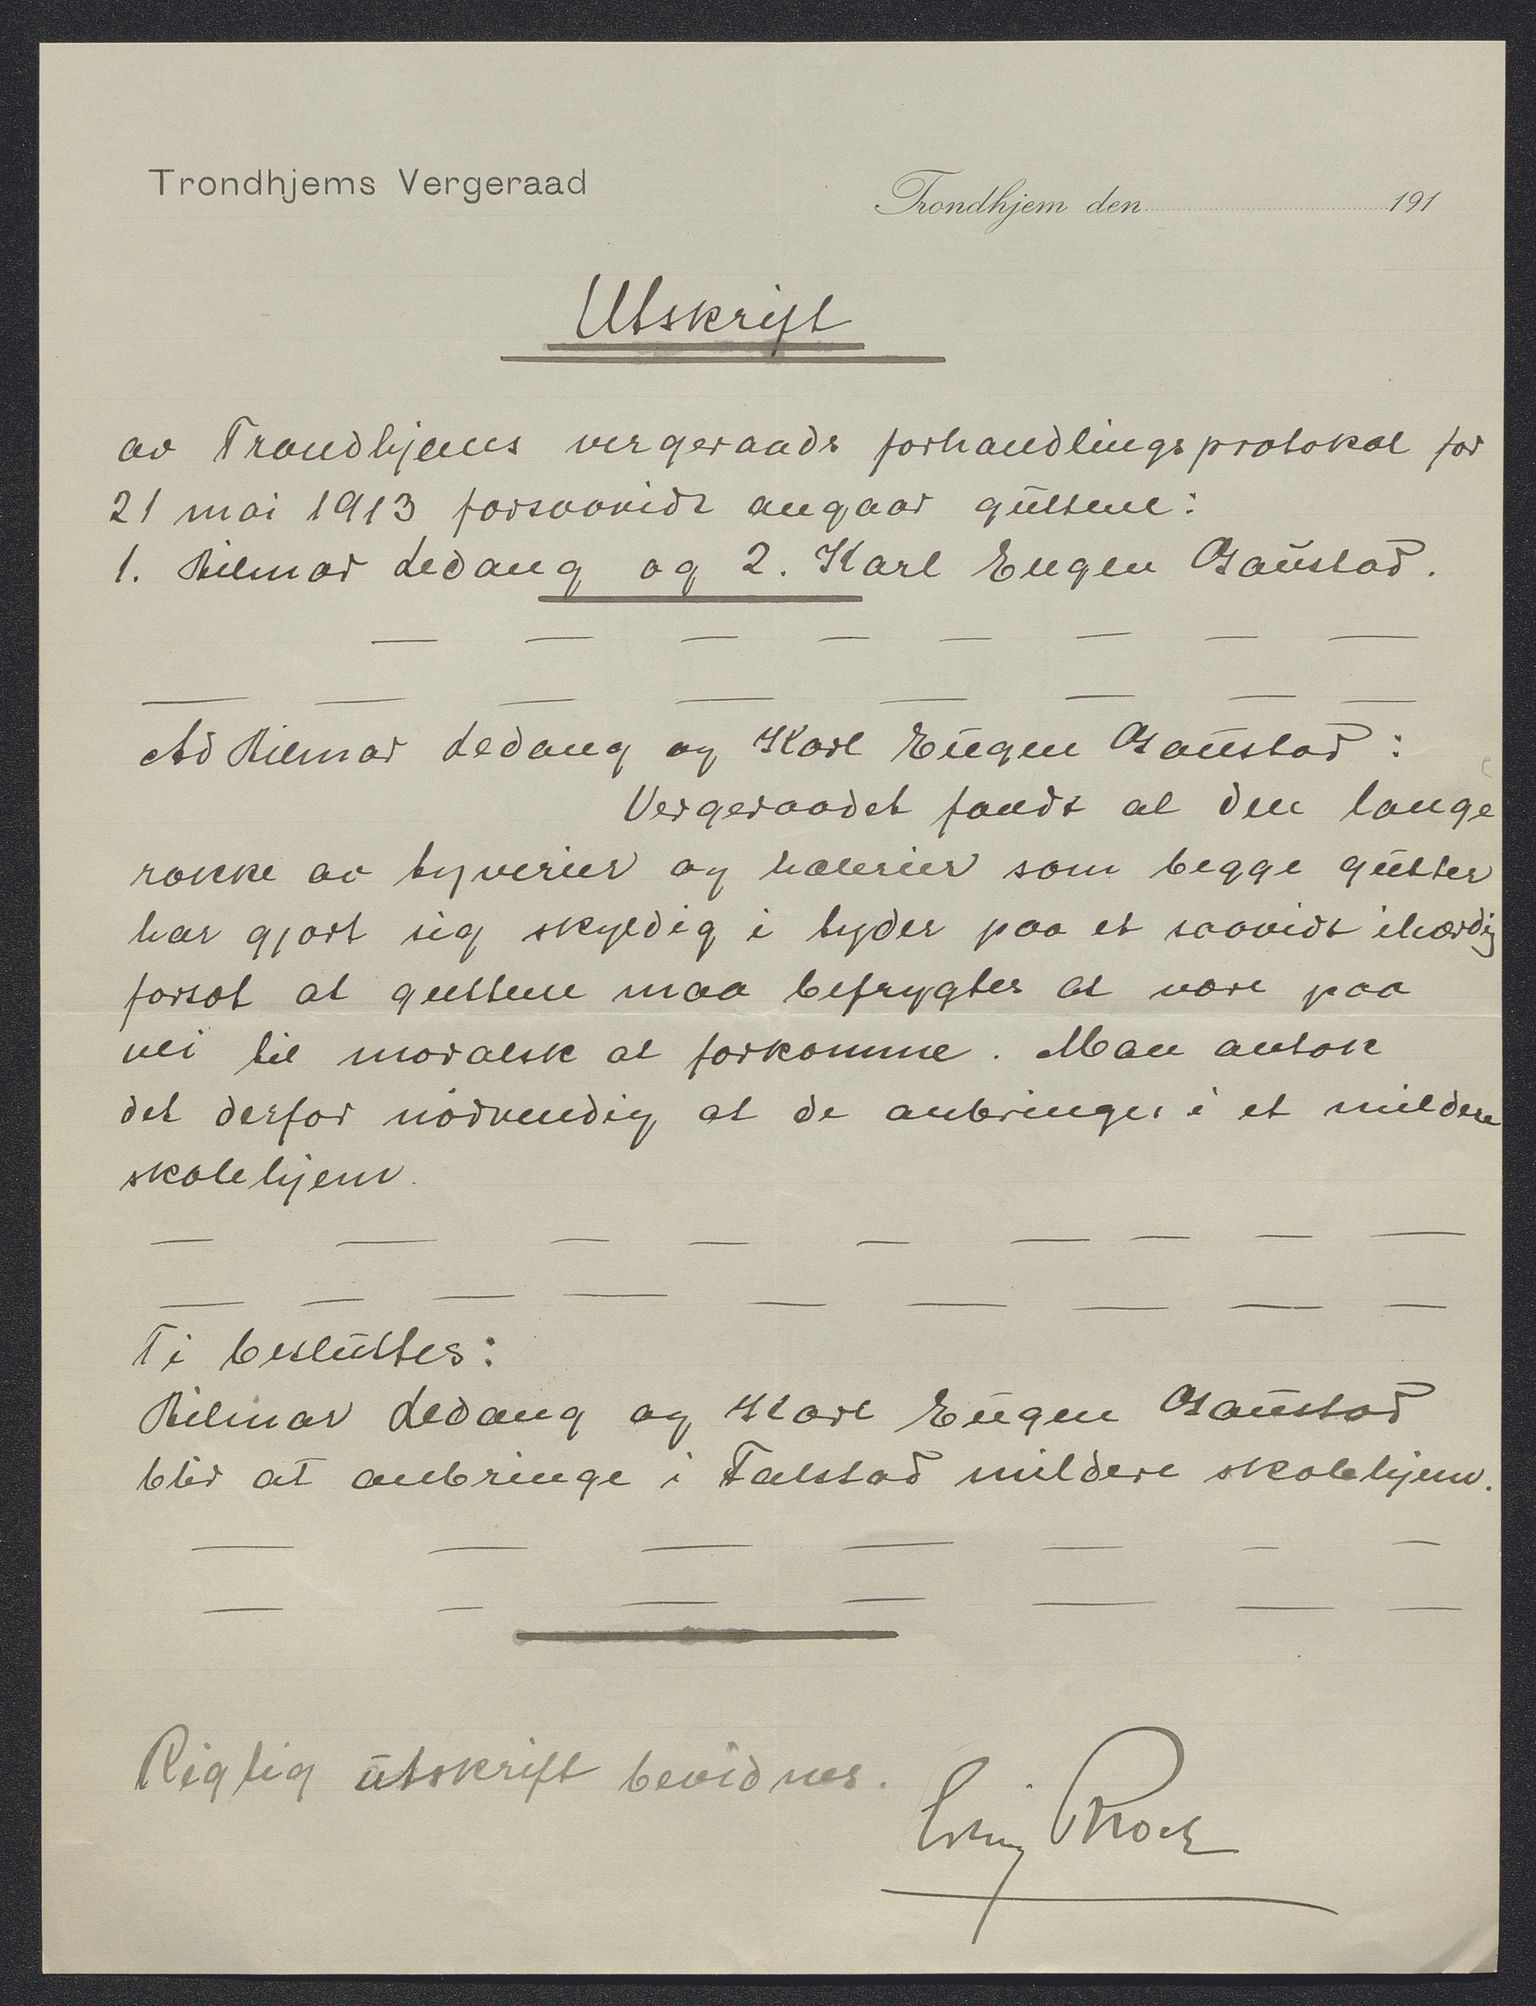 Trondhjems Vergeraad
Trondhjem den 191
Utskrift
av Trondhjems vergeraads forhandlingsprotokol for
21 mai 1913 forsaavidt angaar guttene:
1. Hilmar Ledang og 2. Karl Eugen Gaustad.
Ad Hilmar Ledang og Karl Eugen Gaustad:
Vergeraadet fandt at den lange
række av tyverier og hælerier som begge gutter
har gjort sig skyldig i tyder paa et saavidt ihærdig
forsæt at guttene maa befrygtes at være paa
vei til moralsk at forkomme. Man antok
det derfor nødvendig at de anbringes i et mildere
skolehjem.
Ti besluttes:
Hilmar Ledang og Karl Eugen Gaustad
blir at anbringe i Falstad mildere skolehjem.
Rigtig utskrift bevidnes.